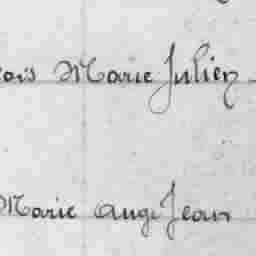 Marie Julien
Marie Ange Jean